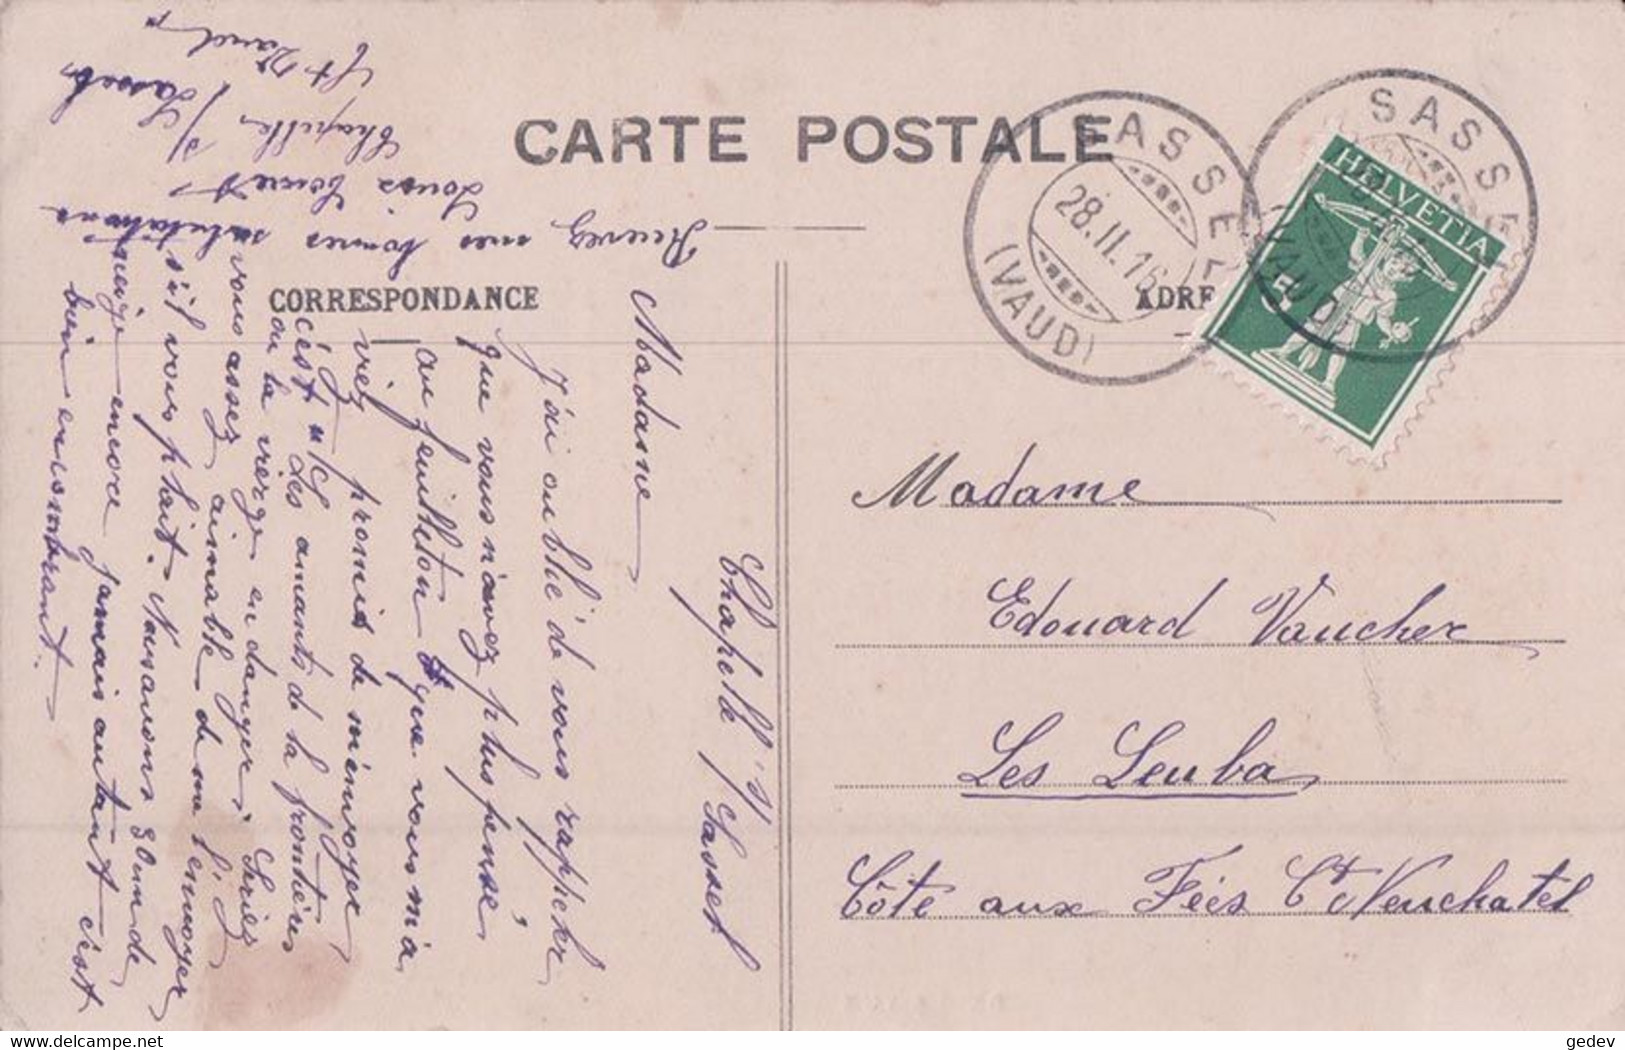 CARTE POSTALE
CORRESPONDANCE
ADRE
SASSEL
28.II.16
(VAUD)
SASSEL
(VAUD)
HELVETIA
5
Madame
Edouard Vaucher
Les Leuba
Côte aux Fées Ct Neuchatel
Chapelle s/ Sassel
Madame
J'ai oublié de vous rappeler
que vous n'avez plus pensé
au feuilleton que vous m'a
viez promis de m'envoyer
c'est "Les amants de la frontière
ou la vierge en danger" Seriez
vous assez aimable de m l'envoyer
s'il vous plait. Nous avons eu de
neige encore jamais autant c'est
bien encombrant.
Recevez mes bonnes salutations
Chapelle s/ Sassel
Ct Vaud
delcampe.net
gedev